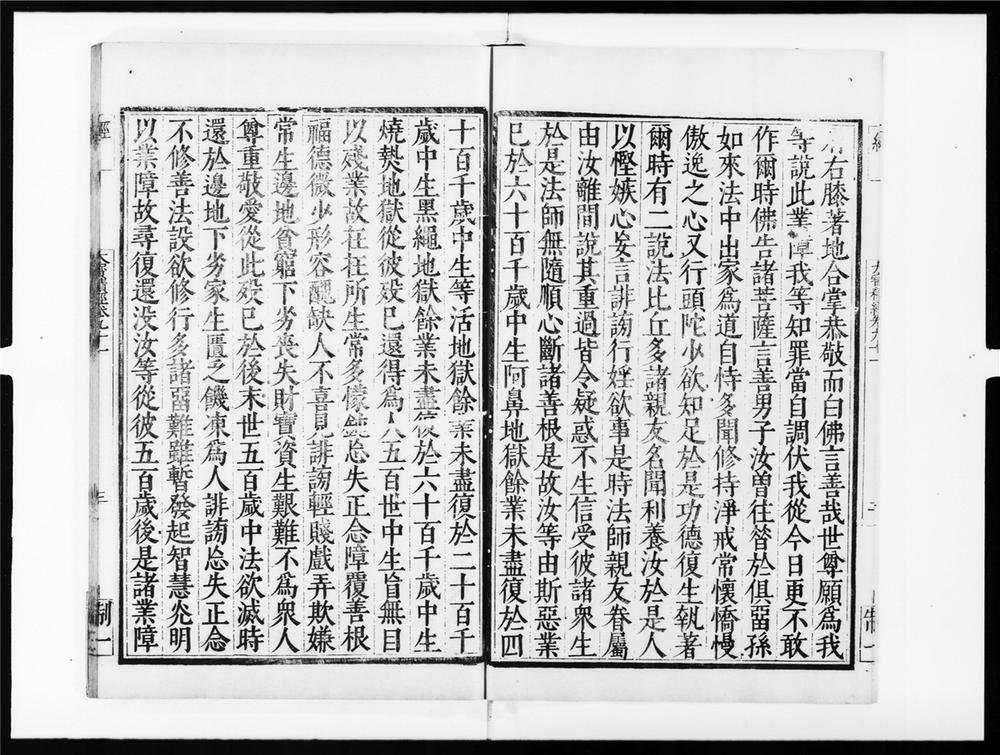 肩右膝著地合掌恭敬而白佛言善哉世尊願爲我
等說此業障我等知罪當自調伏我從今日更不敢
作爾時佛告諸菩薩言善男子汝曾往昔於俱留孫
如來法中出家爲道自恃多聞修持淨戒常懷憍慢
傲逸之心又行頭陀少欲知足於是功德復生執著
爾時有二說法比丘多諸親友名聞利養汝於是人
以慳嫉心妄言誹謗行婬欲事是時法師親友眷屬
由汝離間說其重過皆令疑惑不生信受彼諸衆生
於是法師無隨順心斷諸善根是故汝等由斯惡業
已於六十百千歲中生阿鼻地獄餘業未盡復於四
十百千歲中生等活地獄餘業未盡復於二十百千
歲中生黑繩地獄餘業未盡復於六十百千歲中生
燒熱地獄從彼歿已還得爲人五百世中生盲無目
以殘業故在在所生常多懞鈍忘失正念障覆善根
福德微少形容醜缺人不喜見誹謗輕賤戲弄欺嫌
常生邊地貧窮下劣喪失財寶資生艱難不爲衆人
尊重敬愛從此歿已於後末世五百歲中法欲滅時
還於邊地下劣家生匱乏饑凍爲人誹謗忘失正念
不修善法設欲修行多諸留難雖暫發起智慧光明
以業障故尋復還没汝等從彼五百歲後是諸業障